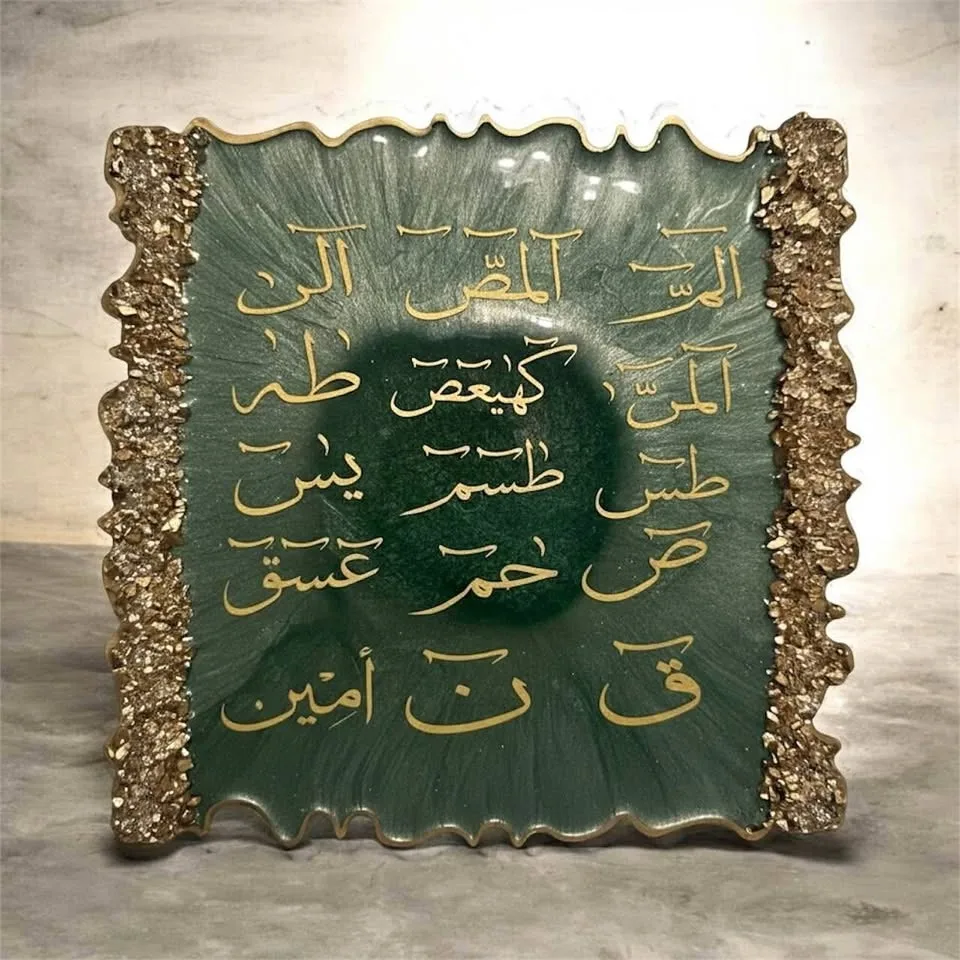 الٓمّٓ الٓمّٓصٓ الٓرٰ
الٓمّٓرٰ كٓهٰيٰعٓصٓ طٰهٰ
طٰسٓ طٰسٓمٓ يٰسٓ
صٓ حٰمٓ عٓسٓقٓ
قٓ نٓ أمين